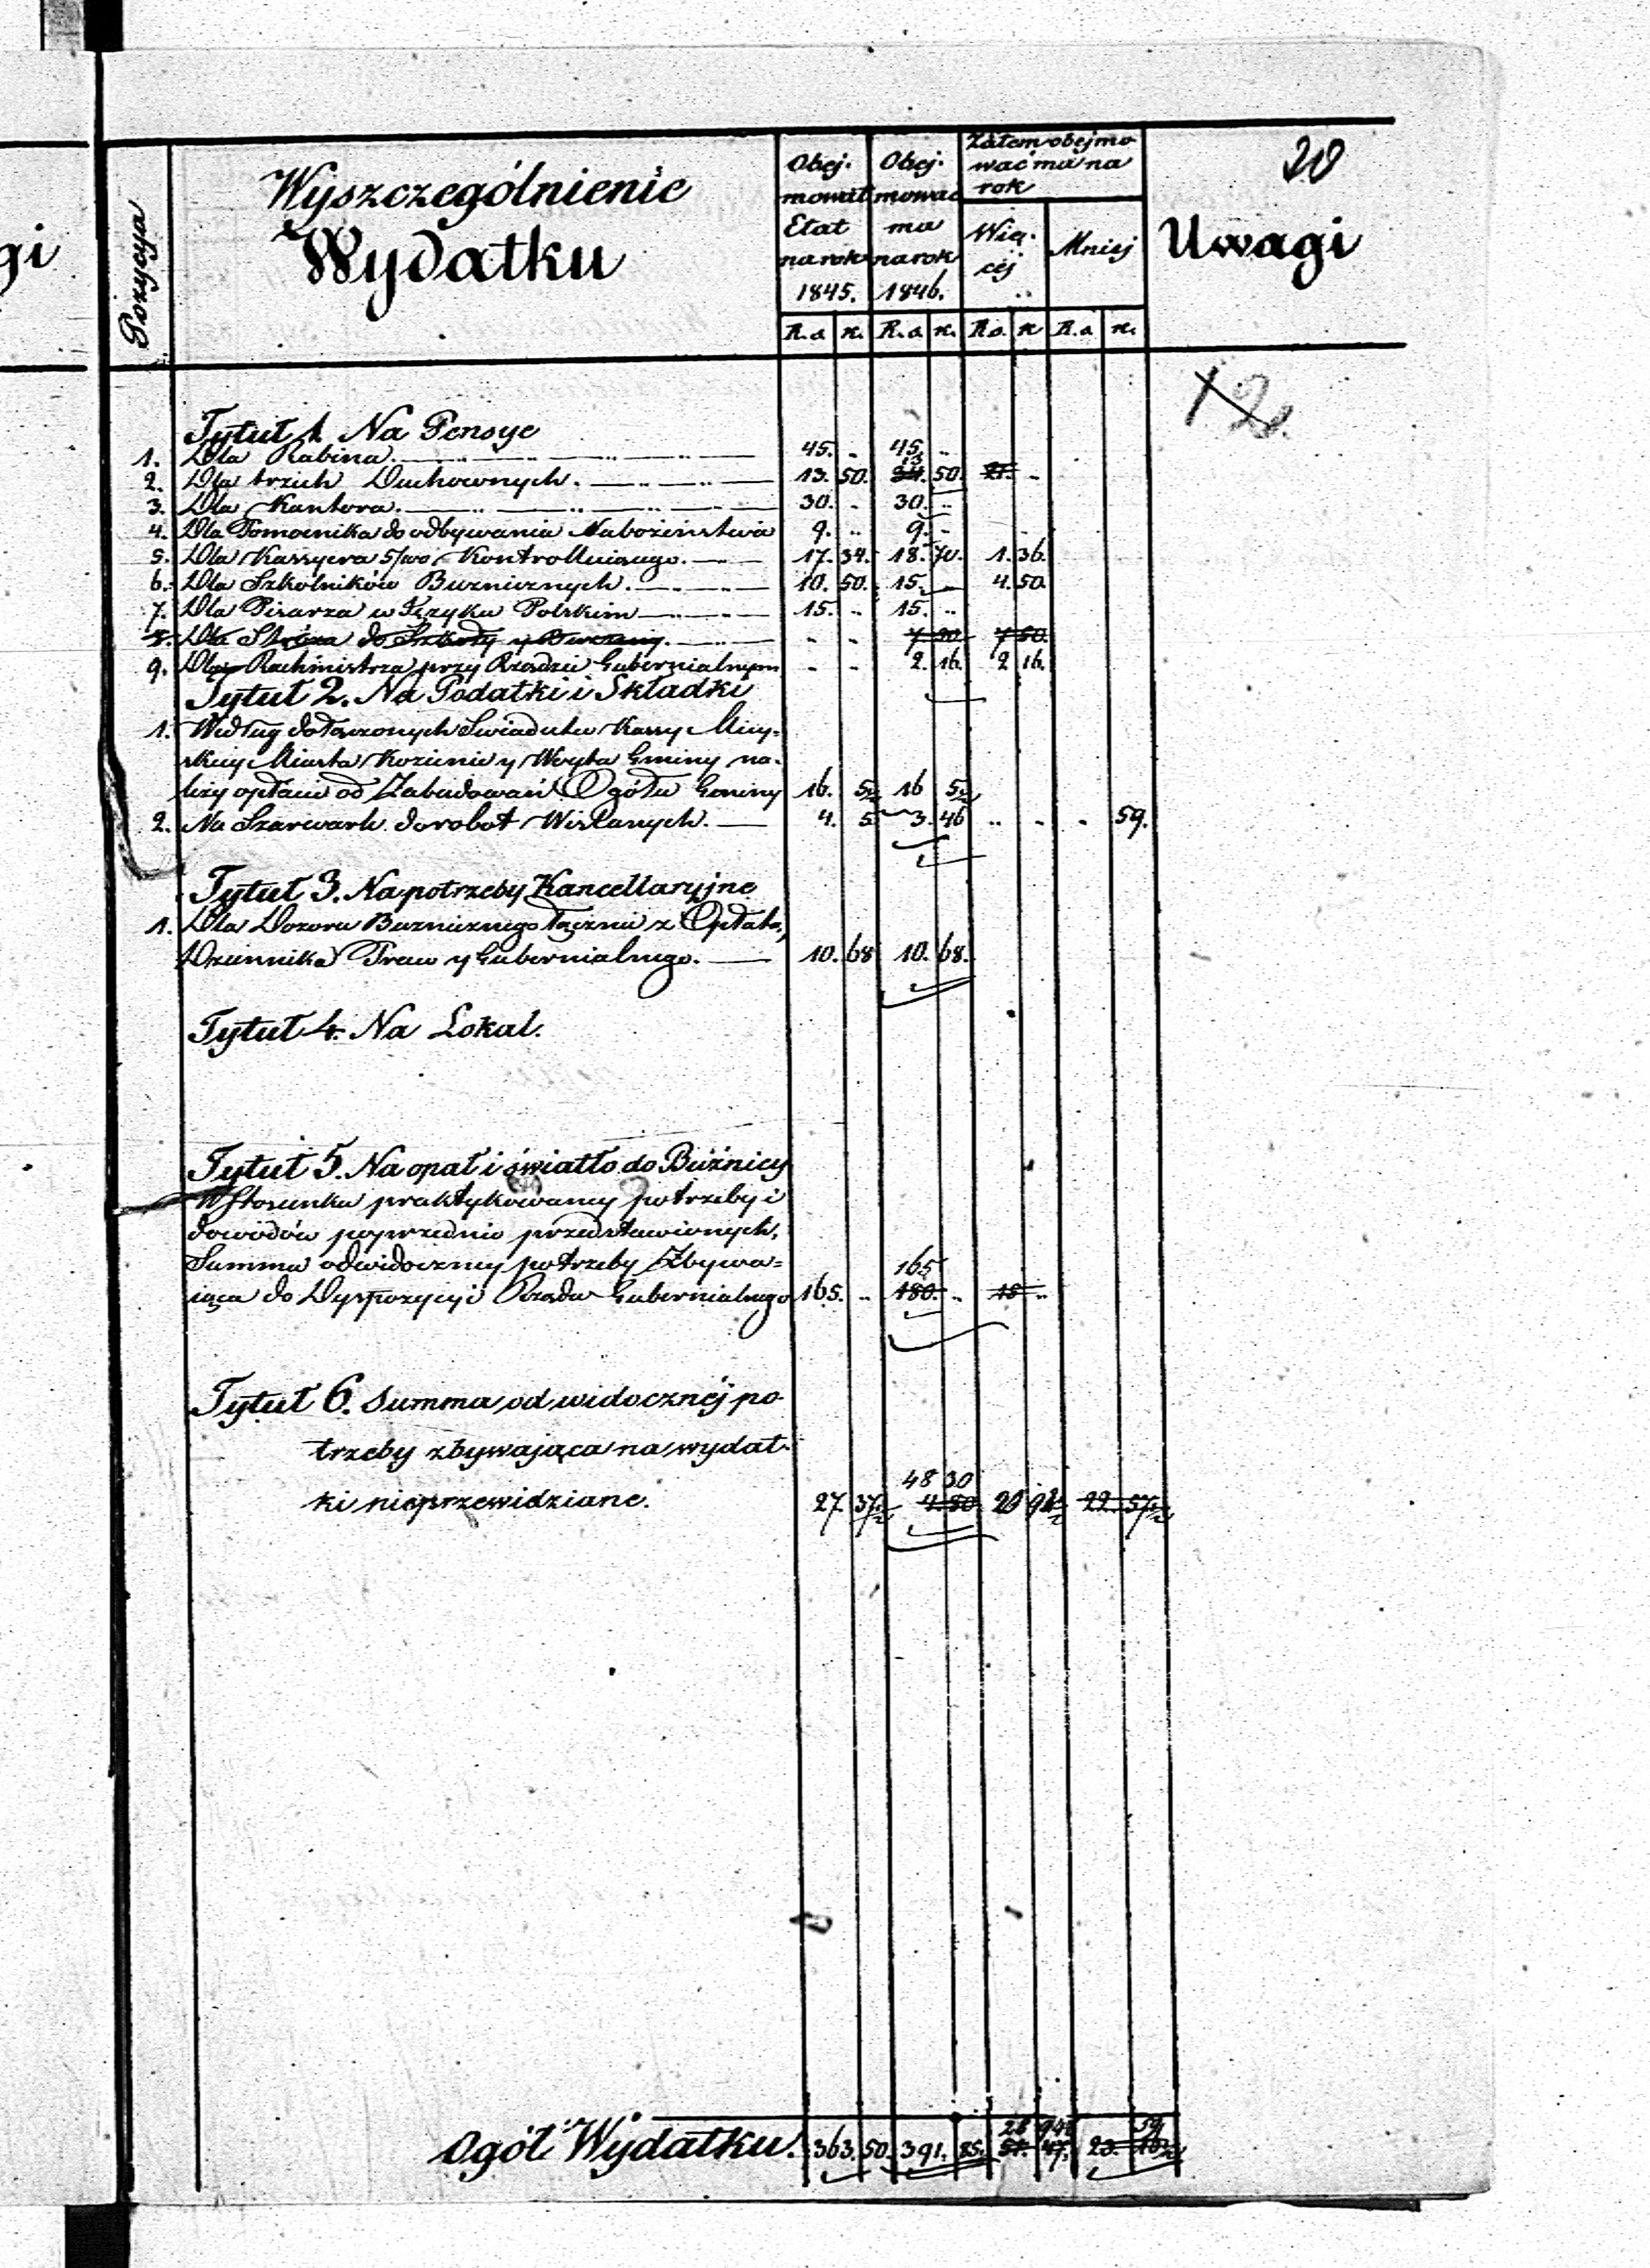 gi
20
Pozycya
Wyszczególnienie
Wydatku
Obej-
mował
Etat
na rok
1845.
Obej-
mować
ma
na rok
1846.
Zatem obejmo
wać ma na
rok
Wię-
céj
Mniej
Uwagi
R. s k. R. s k. R s. k R. s k.
12.
Tytuł 1. Na Pensye
1. Dla Rabina. 45. .. 45. ..
2. Dla trzech Duchownych. 13. 50. 13 34. 50. 21. -
3. Dla Kantora. 30. - 30. ..
4. Dla Pomocnika do odbywania Nabożeństwa 9. .. 9. -
5. Dla Kassyera Kontrolluiącego. 17. 34. 18. 70. 1. 36.
6. Dla Szkolników Buznicznych. 10. 50. 15. .. 4. 50.
7. Dla Pisarza w Języku Polskim 15. .. 15. ..
8. Dla Stróża do Szkoły y Buzznicy. - - 7 50. 7 50.
9. Dla Rachmistrza przy Rządzie Gubernialnym - - 2. 16. 2 16.
Tytuł 2. Na Podatki i Składki
1. Według dołączonych Swiadectw Kassy Miey-
skiey Miasta Kozienic y Woyta Gminy na-
leży opłacić od Zabudowań Ogółu Gminy 16. 5½ 16 5½
2. Na Szarwark do robot Wislanych. 4. 5 3. 46 .. - - 59.
Tytuł 3. Na potrzeby Kancellaryjne
1. Dla Dozoru Buznicznego łącznie z Opłatą
Dziennika Praw y Gubernialnego. 10. 68 10. 68.
Tytuł 4. Na Lokal.
Tytuł 5. Na opał i światło do Bóźnicy
W Stosunku praktykowaney potrzeby i
dowodów poprzednio przedstawionych,
Summa od widoczney potrzeby Zbywa=
165
iąca do Dyspozycyi Rządu Gubernialnego 165. .. 180. .. 15 ..
Tytuł 6. Summa od widocznéj po
trzeby zbywająca na wydat-
48 30
ki nieprzewidziane. 27. 37½ 4. 80 20 92½ 22. 57½
28 94½ 59
Ogół Wydatku. 363. 50. 391. 85. 51. 47. 23. 16½